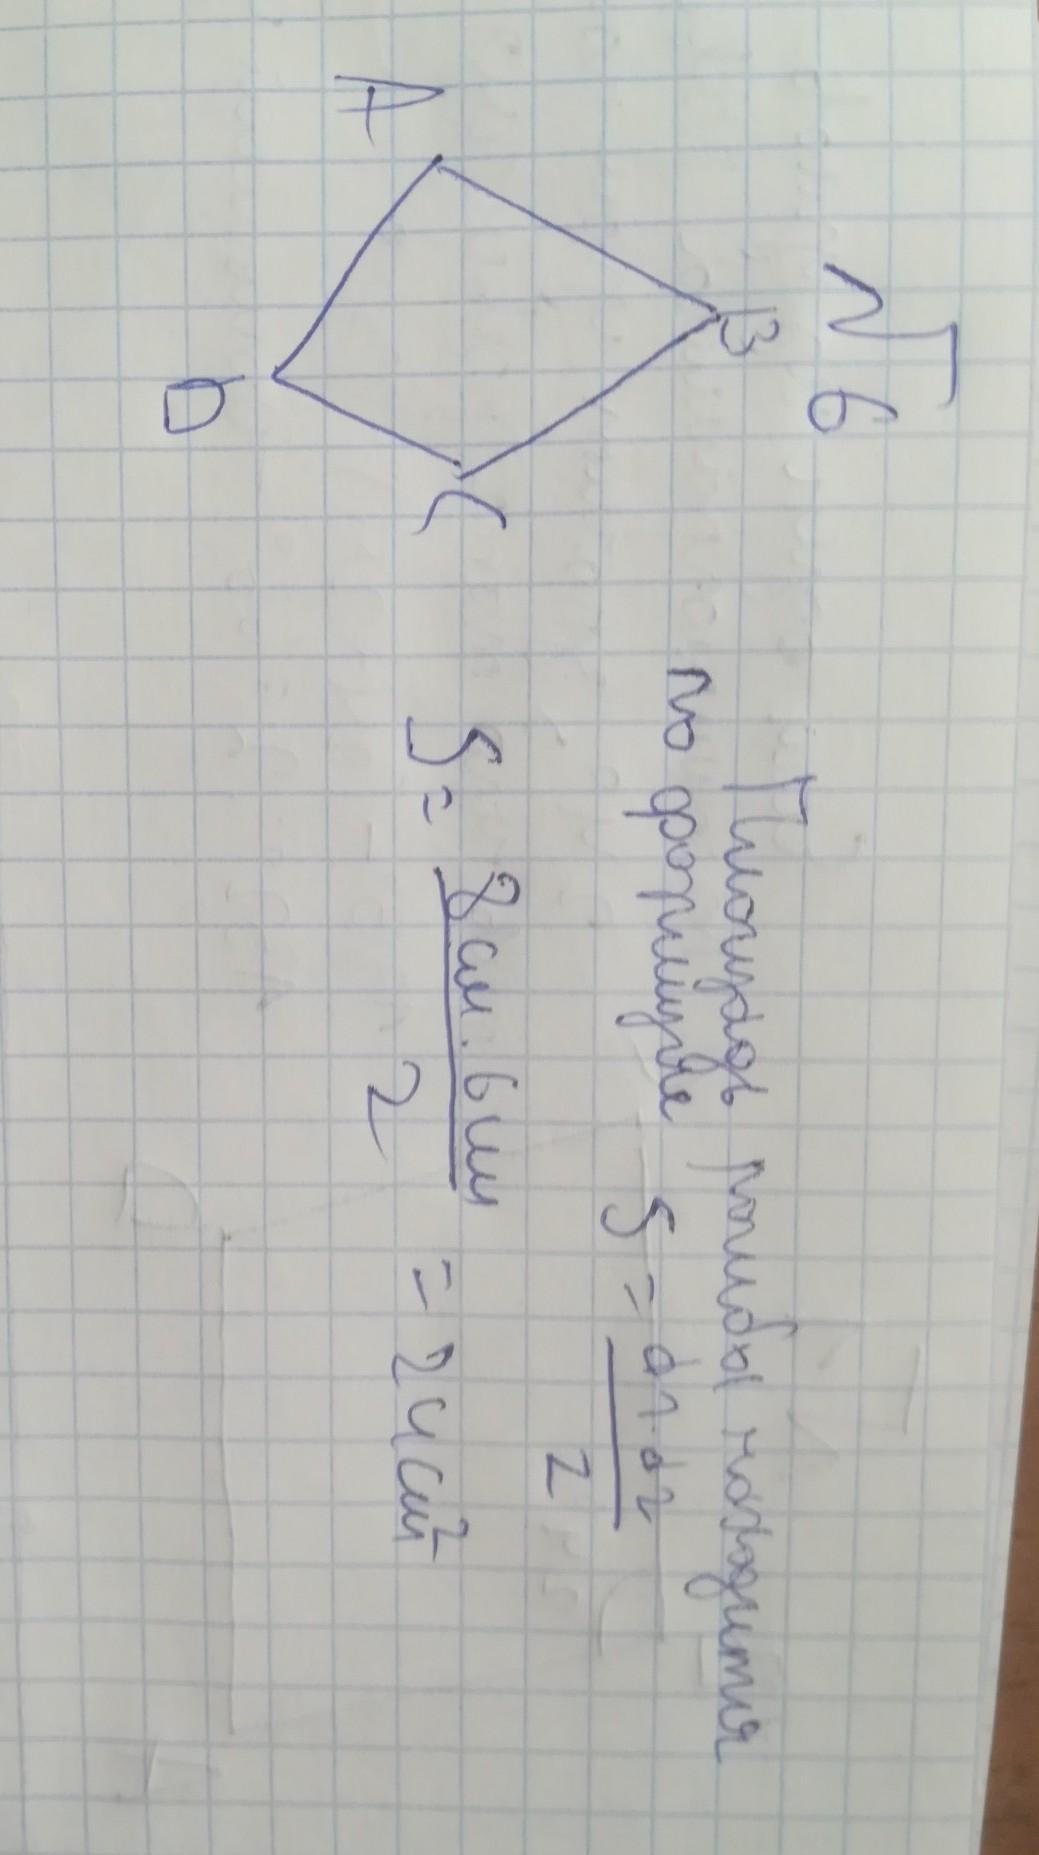 √6
B
A
C
D
Площадь ромба находится
по формуле S = d1·d2
2
S = 8см·6см = 24см²
2